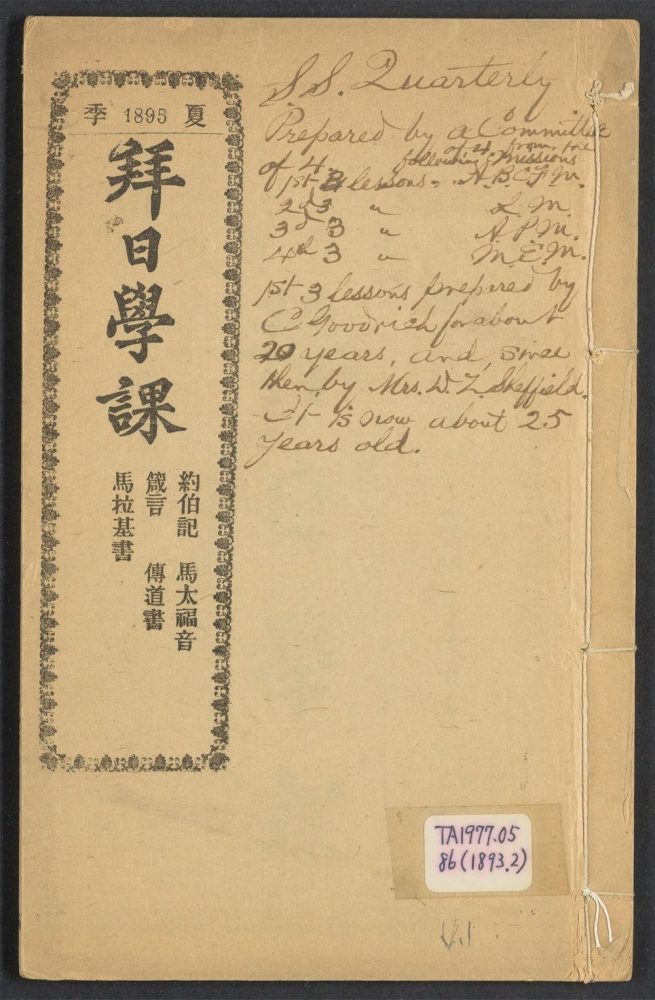 夏 1893 季
拜日學課
約伯記 馬太福音
箴言 傳道書
馬拉基書
S.S. Quarterly
Prepared by a Committee
of 4 from the
of 4 following Missions
1st 3 lessons - A.B.C.F.M.
2d 3 " L.M.
3d 3 " A.P.M.
4th 3 " M.E.M.
1st 3 lessons prepared by
C Goodrich for about
20 years, and, since
then by Mrs. D. Z. Sheffield.
It is now about 25
years old.
TA1977.05
86(1893.2)
V.1